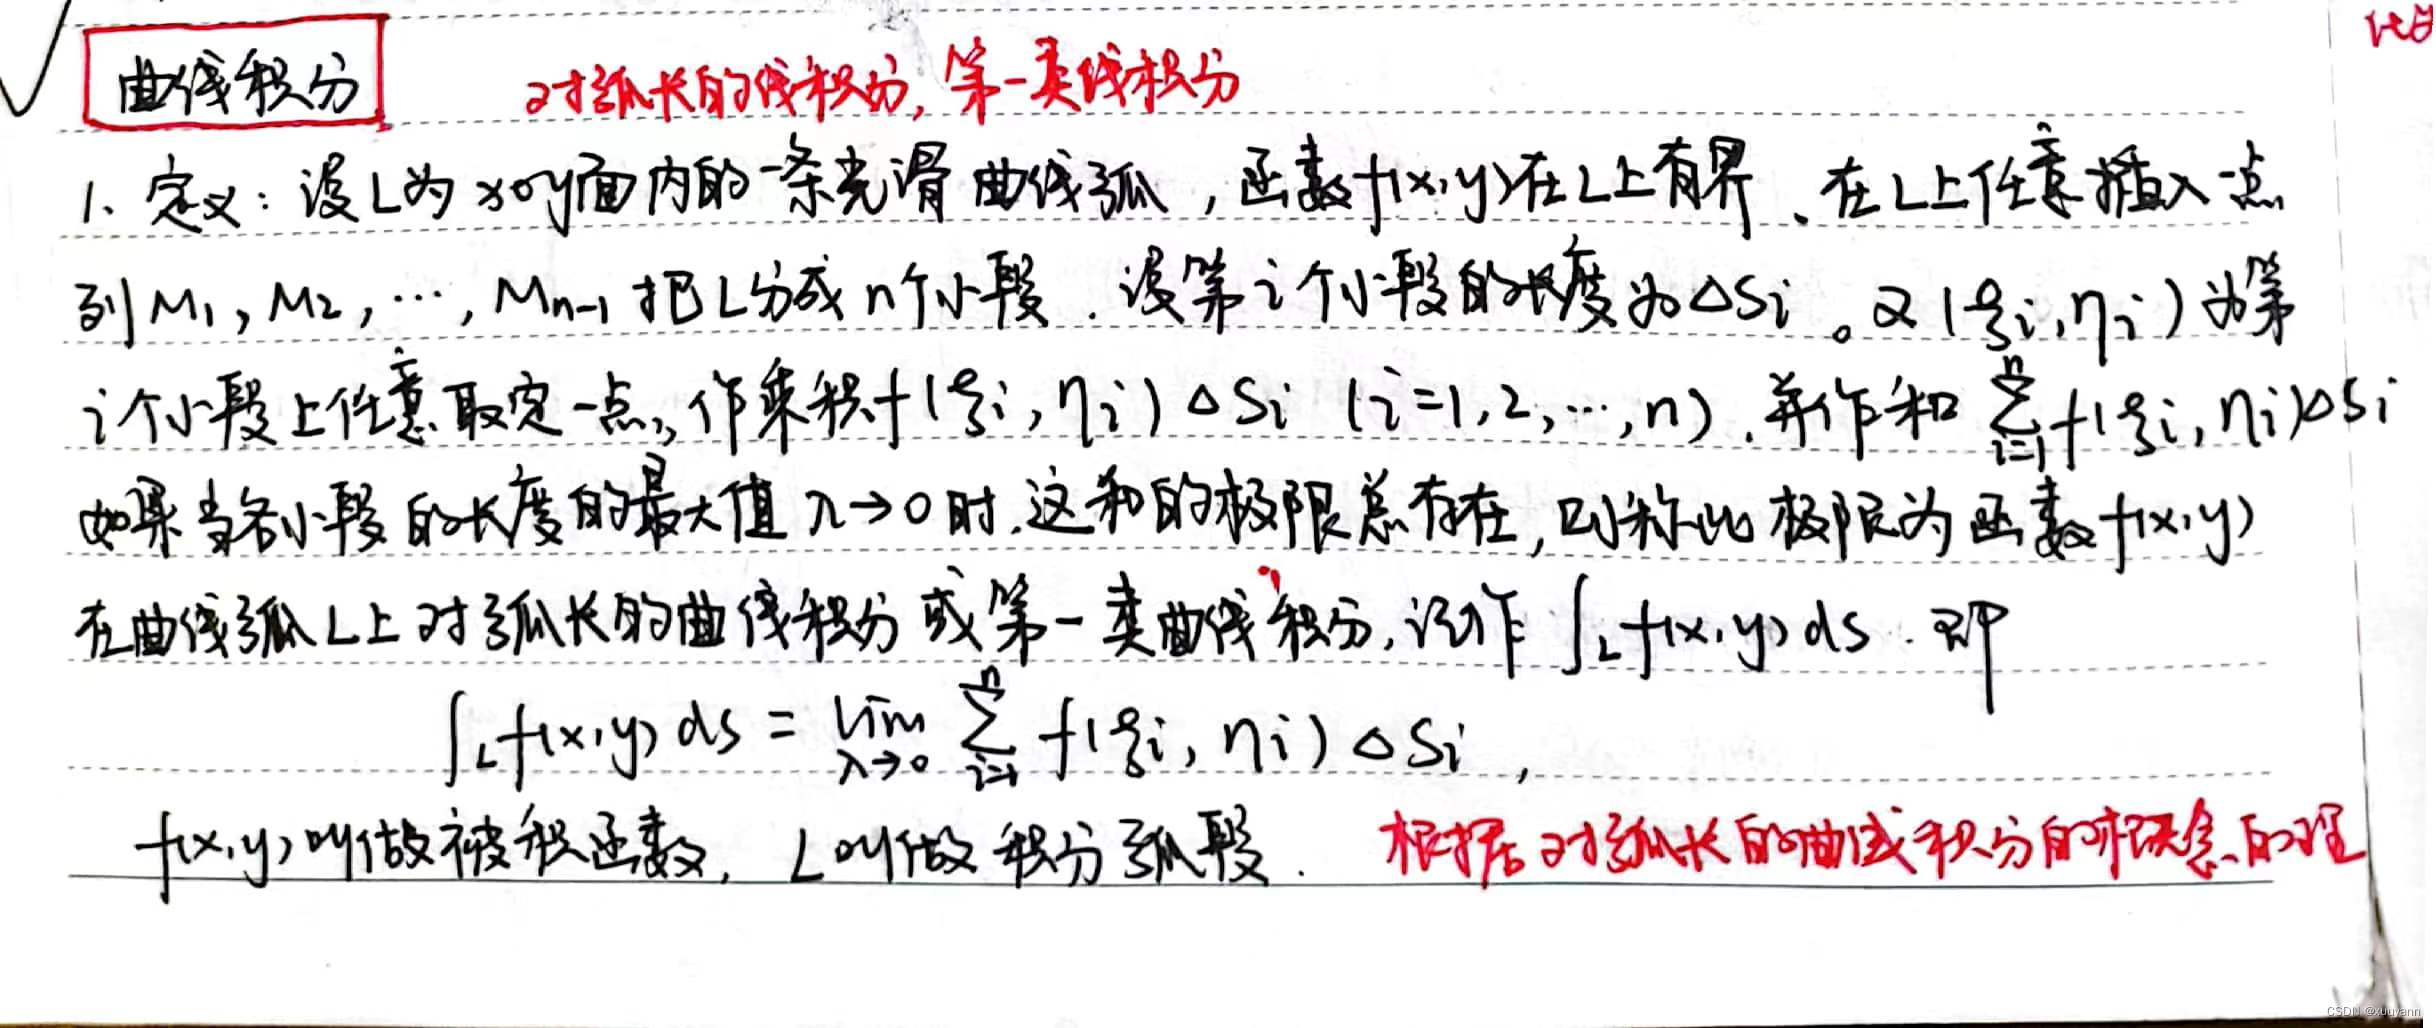 曲线积分 对弧长的线积分, 第一类线积分
1、定义: 设L为xoy面内的一条光滑曲线弧, 函数f(x,y)在L上有界、在L上任意插入一点
列M₁, M₂, …, Mn-1 把L分成n个小段. 设第i个小段的长度为△Si。又(ξi,ηi)为第
i个小段上任意取定一点, 作乘积f(ξi, ηi)△Si (i=1,2,…,n), 并作和 ∑_{i=1}^{n} f(ξi, ηi)△Si
如果当各小段的长度的最大值λ→0时, 这和的极限总存在, 则称此极限为函数f(x,y)
在曲线弧L上对弧长的曲线积分或第一类曲线积分, 记作 ∫_L f(x,y)ds. 即
∫_L f(x,y)ds = lim_{λ→0} ∑_{i=1}^{n} f(ξi, ηi)△Si,
f(x,y)叫做被积函数, L叫做积分弧段. 根据对弧长的曲线积分的概念的理
CSDN @xuuyann